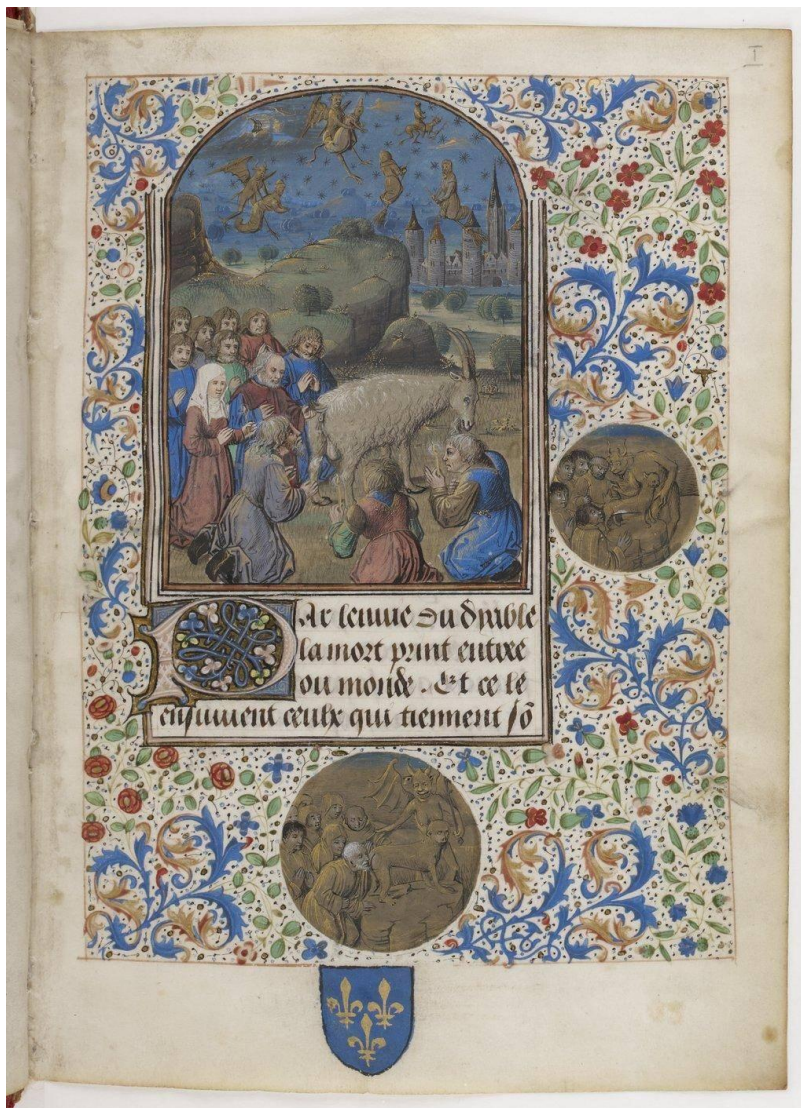 I
Par lenuie du dyable
la mort print entree
ou monde . Et ce le
ensuiuent ceulx qui tiennent sō